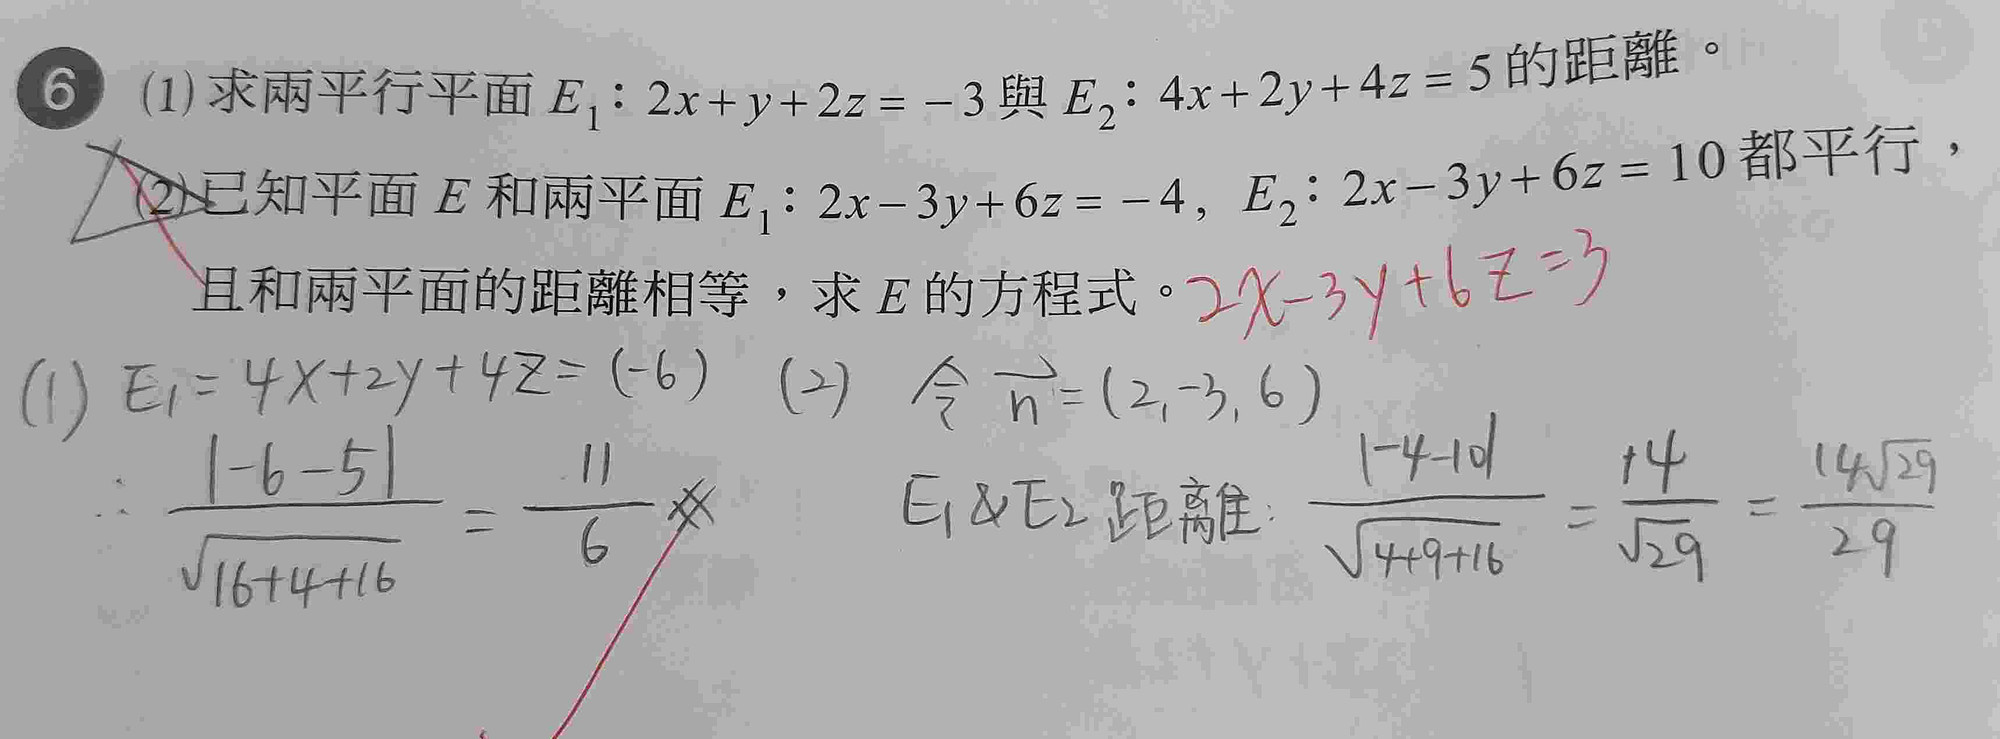 6 (1) 求兩平行平面 E₁：2x+y+2z = −3 與 E₂：4x+2y+4z = 5 的距離。
(2) 已知平面 E 和兩平面 E₁：2x−3y+6z = −4，E₂：2x−3y+6z = 10 都平行，
且和兩平面的距離相等，求 E 的方程式。2x−3y+6z=3
(1) E₁= 4x+2y+4z= (-6)
∴ |-6-5| / √(16+4+16) = 11/6 ※
(2) 令 n⃗=(2,-3,6)
E₁&E₂ 距離: |-4-10| / √(4+9+16) = 14/√29 = 14√29/29